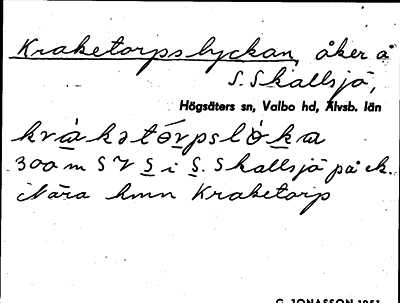 Kraketorpslyckan, åker å
S. Skallsjö,
Högsäters sn, Valbo hd, Älvsb. län
kràkətórpslòka
300 m S V S i S. Skallsjö på ek.
Nära hmn Kraketorp
G. JONASSON 1951